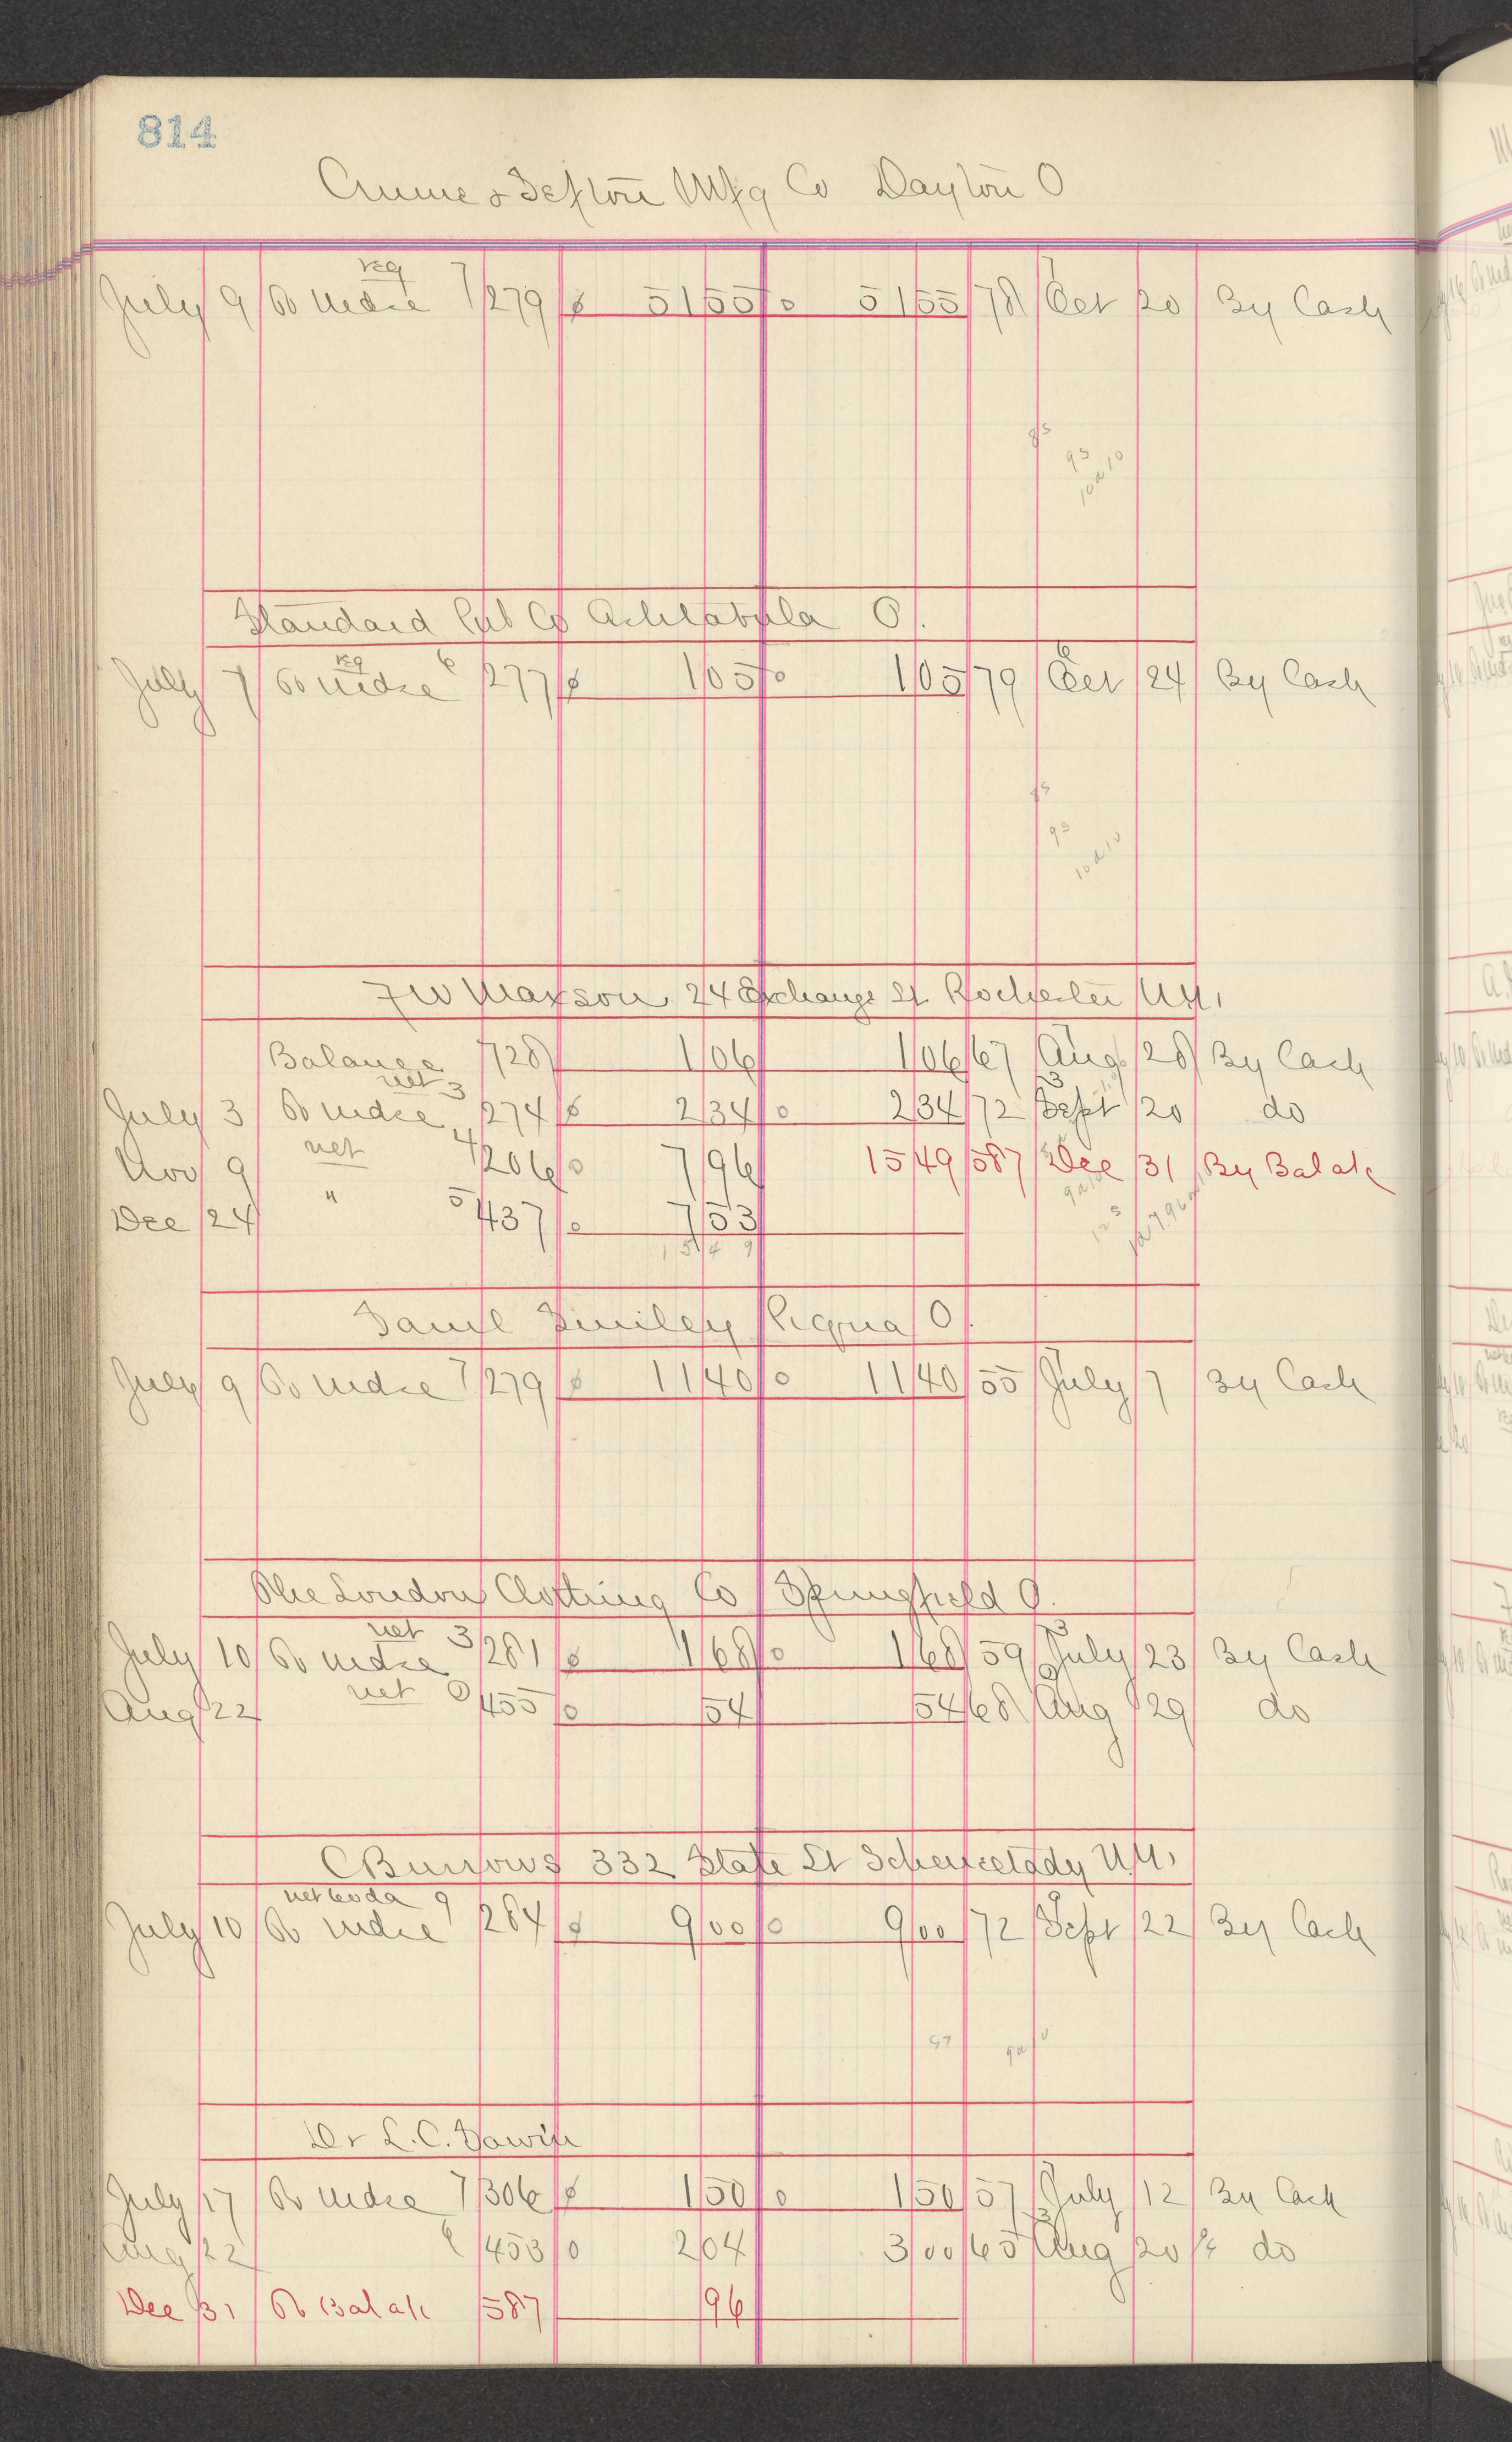 814
Crume & Sefton Mfg Co Dayton O
reg 7
July 9 To Mdse 279 51 55 51 55 78 Oct 20 By Cash
95
93
10 a 10
Standard Pub Co Ashtabula O.
reg 6
July 7 To Mdse 277 1 05 1 05 79 Oct 24 By Cash
95
93
10 a 10
F W Maxson 24 Exchange St Rochester N.Y.
Balance 728 1 06 1 06 67 Aug 28 By Cash
net 3
July 3 To Mdse 274 2 34 2 34 72 Sept 20 do
Nov 9 net 4 206 7 96 15 49 587 Dec 31 By Balale
Dec 24 " 5 437 7 53
15 4 9
Saml Smiley Piqua O.
July 9 To Mdse 7 279 11 40 11 40 55 July 7 By Cash
The London Clothing Co Springfield O.
net 3
July 10 To Mdse 281 1 68 1 68 59 July 23 By Cash
Aug 22 net 455 54 54 68 Aug 29 do
C Burrows 332 State St Schenectady N.Y.
net 60 da 9
July 10 To Mdse 284 9 00 9 00 72 Sept 22 By Cash
Dr L. C.
July 17 To Mdse 7 306 1 50 1 50 57 July 12 By Cash
Aug 22 453 2 04 3 00 65 Aug 20 do
Dec 31 To Balale 587 96